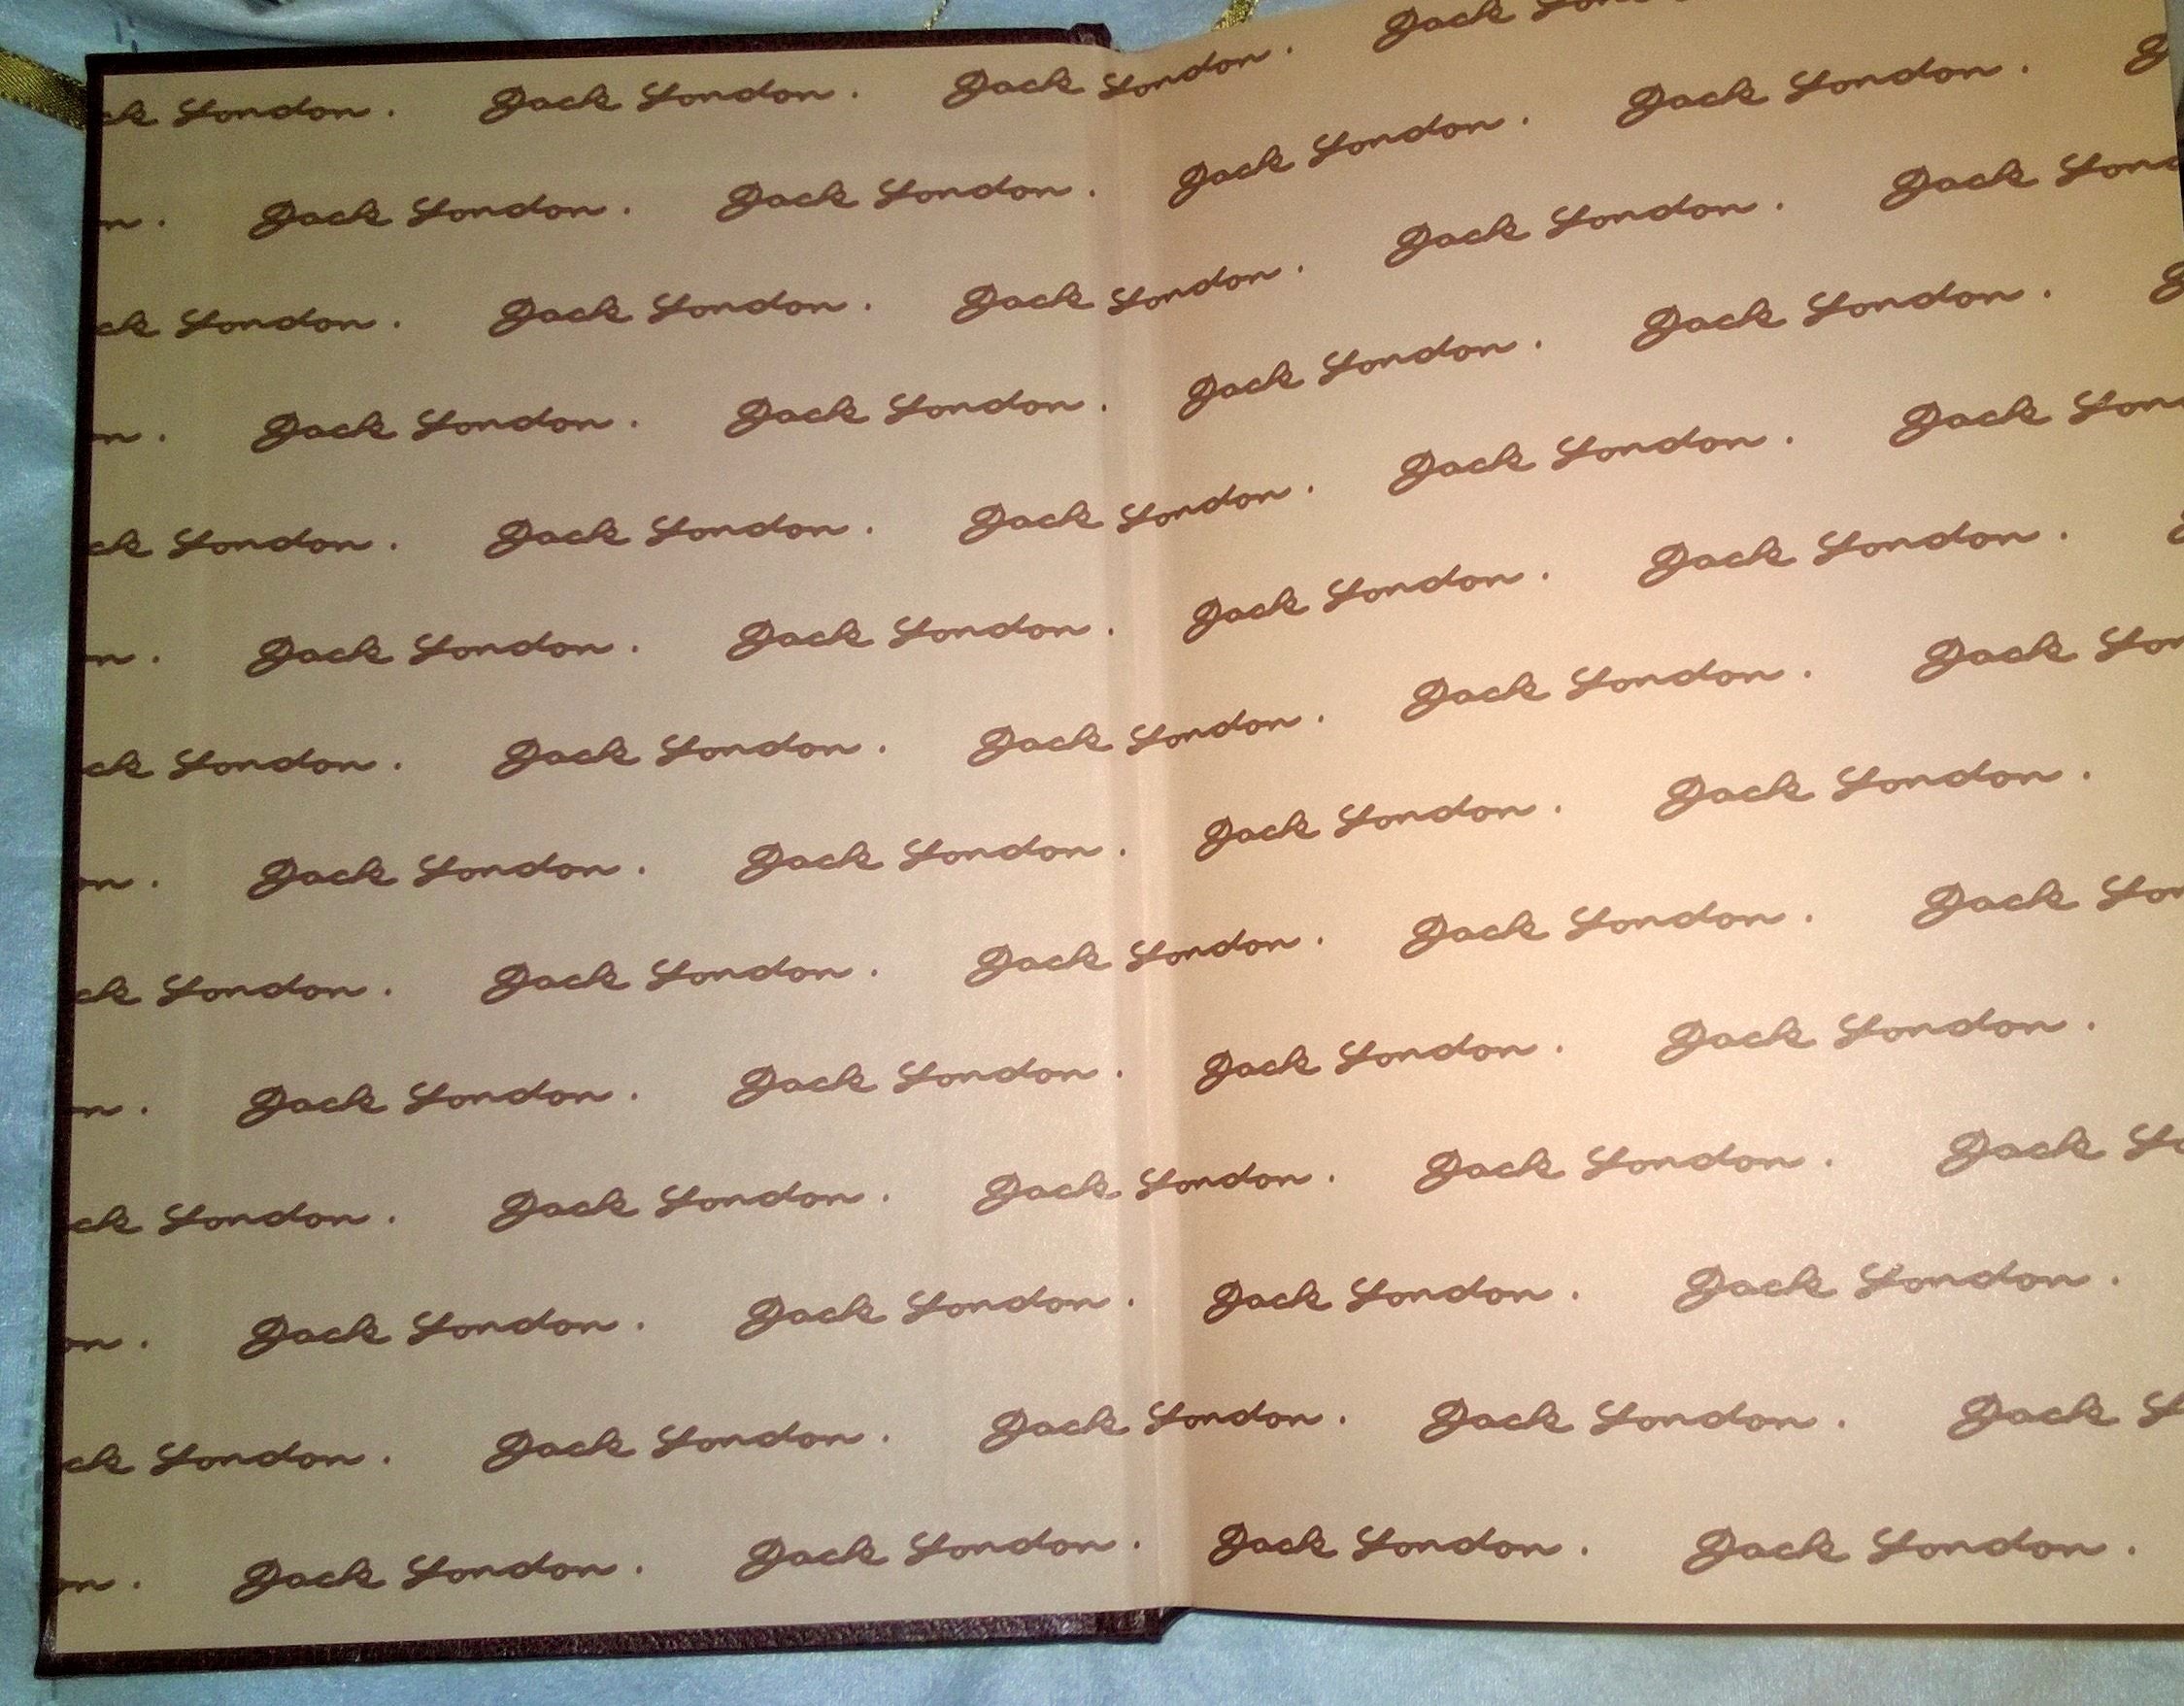 ck London. Jack London. Jack London. Jack Lon
n. Jack London. Jack London. Jack London. Jack London. J
ck London. Jack London. Jack London. Jack London. Jack Lond
n. Jack London. Jack London. Jack London. Jack London. J
ck London. Jack London. Jack London. Jack London. Jack Lond
n. Jack London. Jack London. Jack London. Jack London. J
ck London. Jack London. Jack London. Jack London. Jack Lon
on. Jack London. Jack London. Jack London. Jack London.
ck London. Jack London. Jack London. Jack London. Jack Lon
n. Jack London. Jack London. Jack London. Jack London.
ck London. Jack London. Jack London. Jack London. Jack Lo
on. Jack London. Jack London. Jack London. Jack London.
ck London. Jack London. Jack London. Jack London. Jack L
on. Jack London. Jack London. Jack London. Jack London.